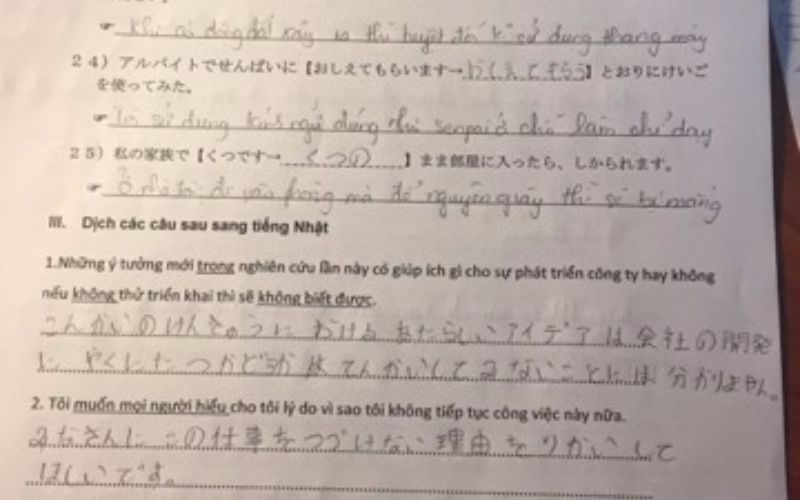 Khi có động đất xảy ra thì tuyệt đối k sử dụng thang máy
24) アルバイトでせんぱいに【おしえてもらいます→おしえてもらう】とおりにけいご
を使ってみた。
Tôi sử dụng kính ngữ đúng như senpai ở chỗ làm chỉ dạy
25) 私の家族で【くつです→くつの】まま部屋に入ったら、しかられます。
Ở nhà tôi đi vào phòng mà để nguyên giày thì sẽ bị mắng
III. Dịch các câu sau sang tiếng Nhật
1.Những ý tưởng mới trong nghiên cứu lần này có giúp ích gì cho sự phát triển công ty hay không
nếu không thử triển khai thì sẽ không biết được.
こんかいのけんきゅうにおけるあたらしいアイデアは会社の開発
にやくにたつかどうかはてんかいしてみないことには分かりません。
2. Tôi muốn mọi người hiểu cho tôi lý do vì sao tôi không tiếp tục công việc này nữa.
みなさんにこの仕事をつづけない理由をりかいして
ほしいです。